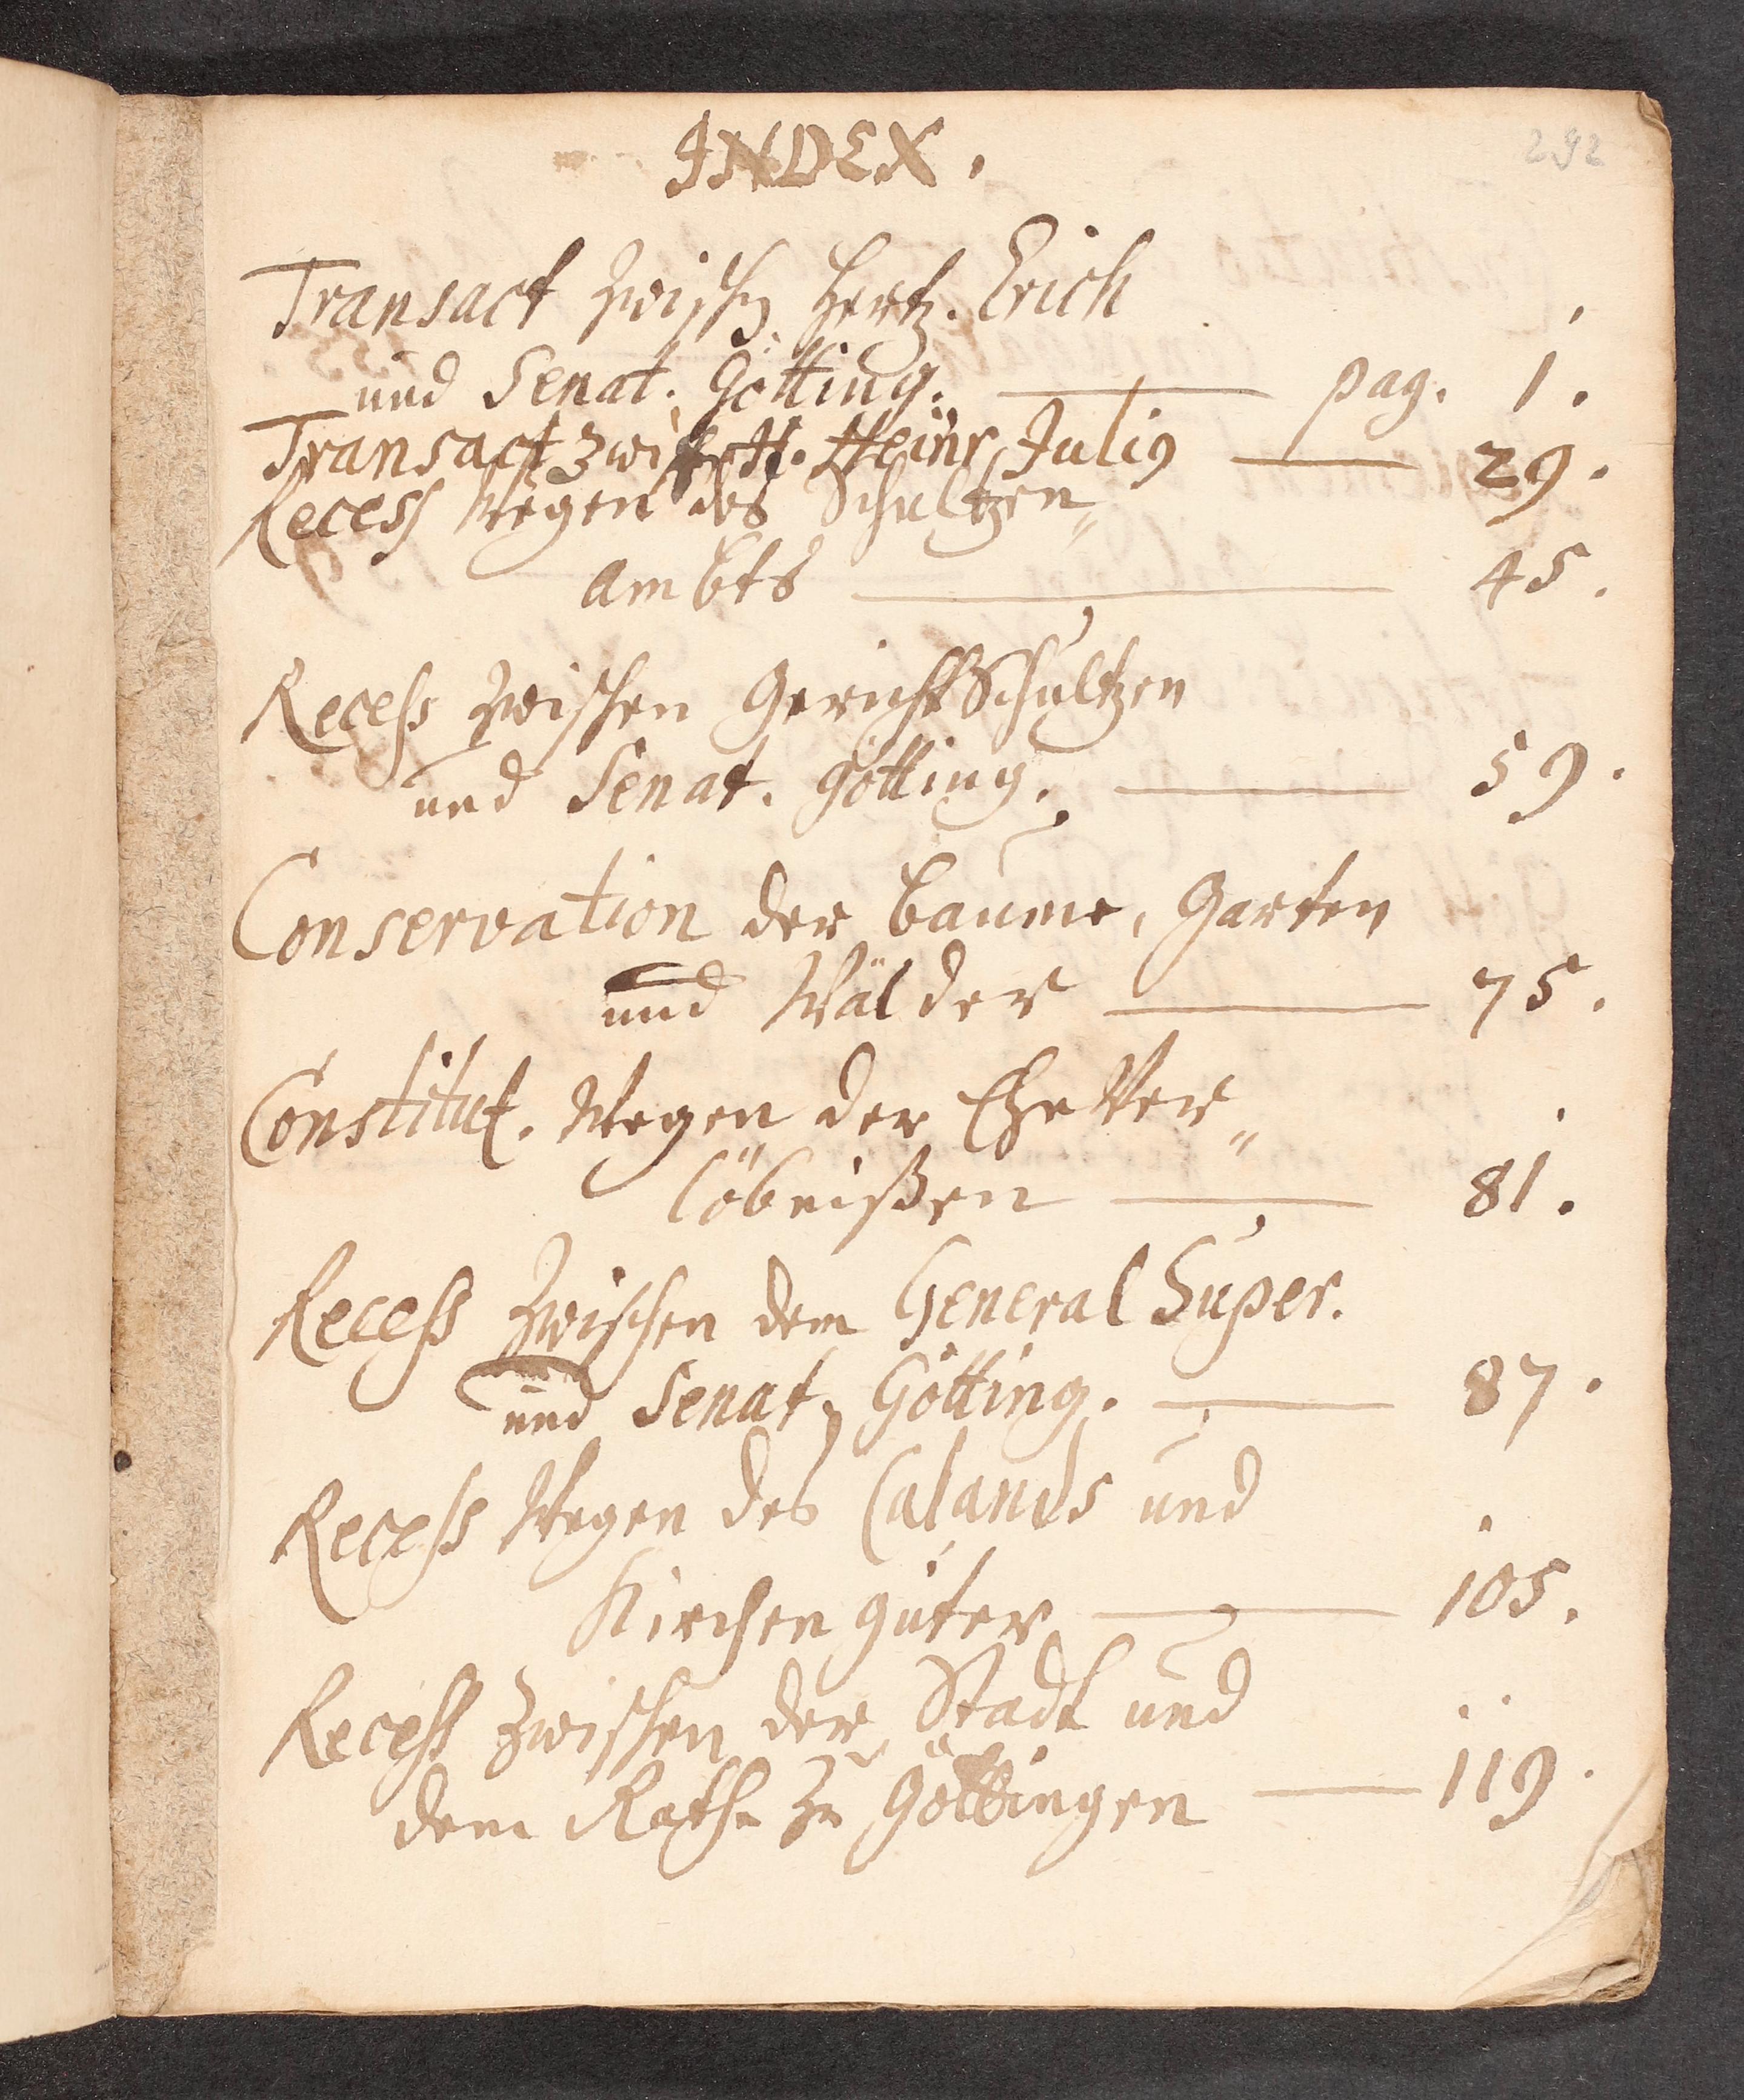 INDEX.
292
Transact zwischen Hertz. Erich
und Senat. Götting. — pag. 1.
Transact zwisch. H. Heinr. Julig — 29.
Recess wegen des Schultzen„
ambts — 45.
Recess zwischen Gericht Schultzen
und Senat. Götting. — 59.
Conservation der Baume, Garten
und Wälder — 75.
Constitut. wegen der Ehe Ver„
löbnißen — 81.
Recess zwischen dem General Super.
und Senat. Götting. — 87.
Recess wegen des Calands und
Kirchen güter — 105.
Recess zwischen der Stadt und
dem Rathe zu Göttingen — 119.